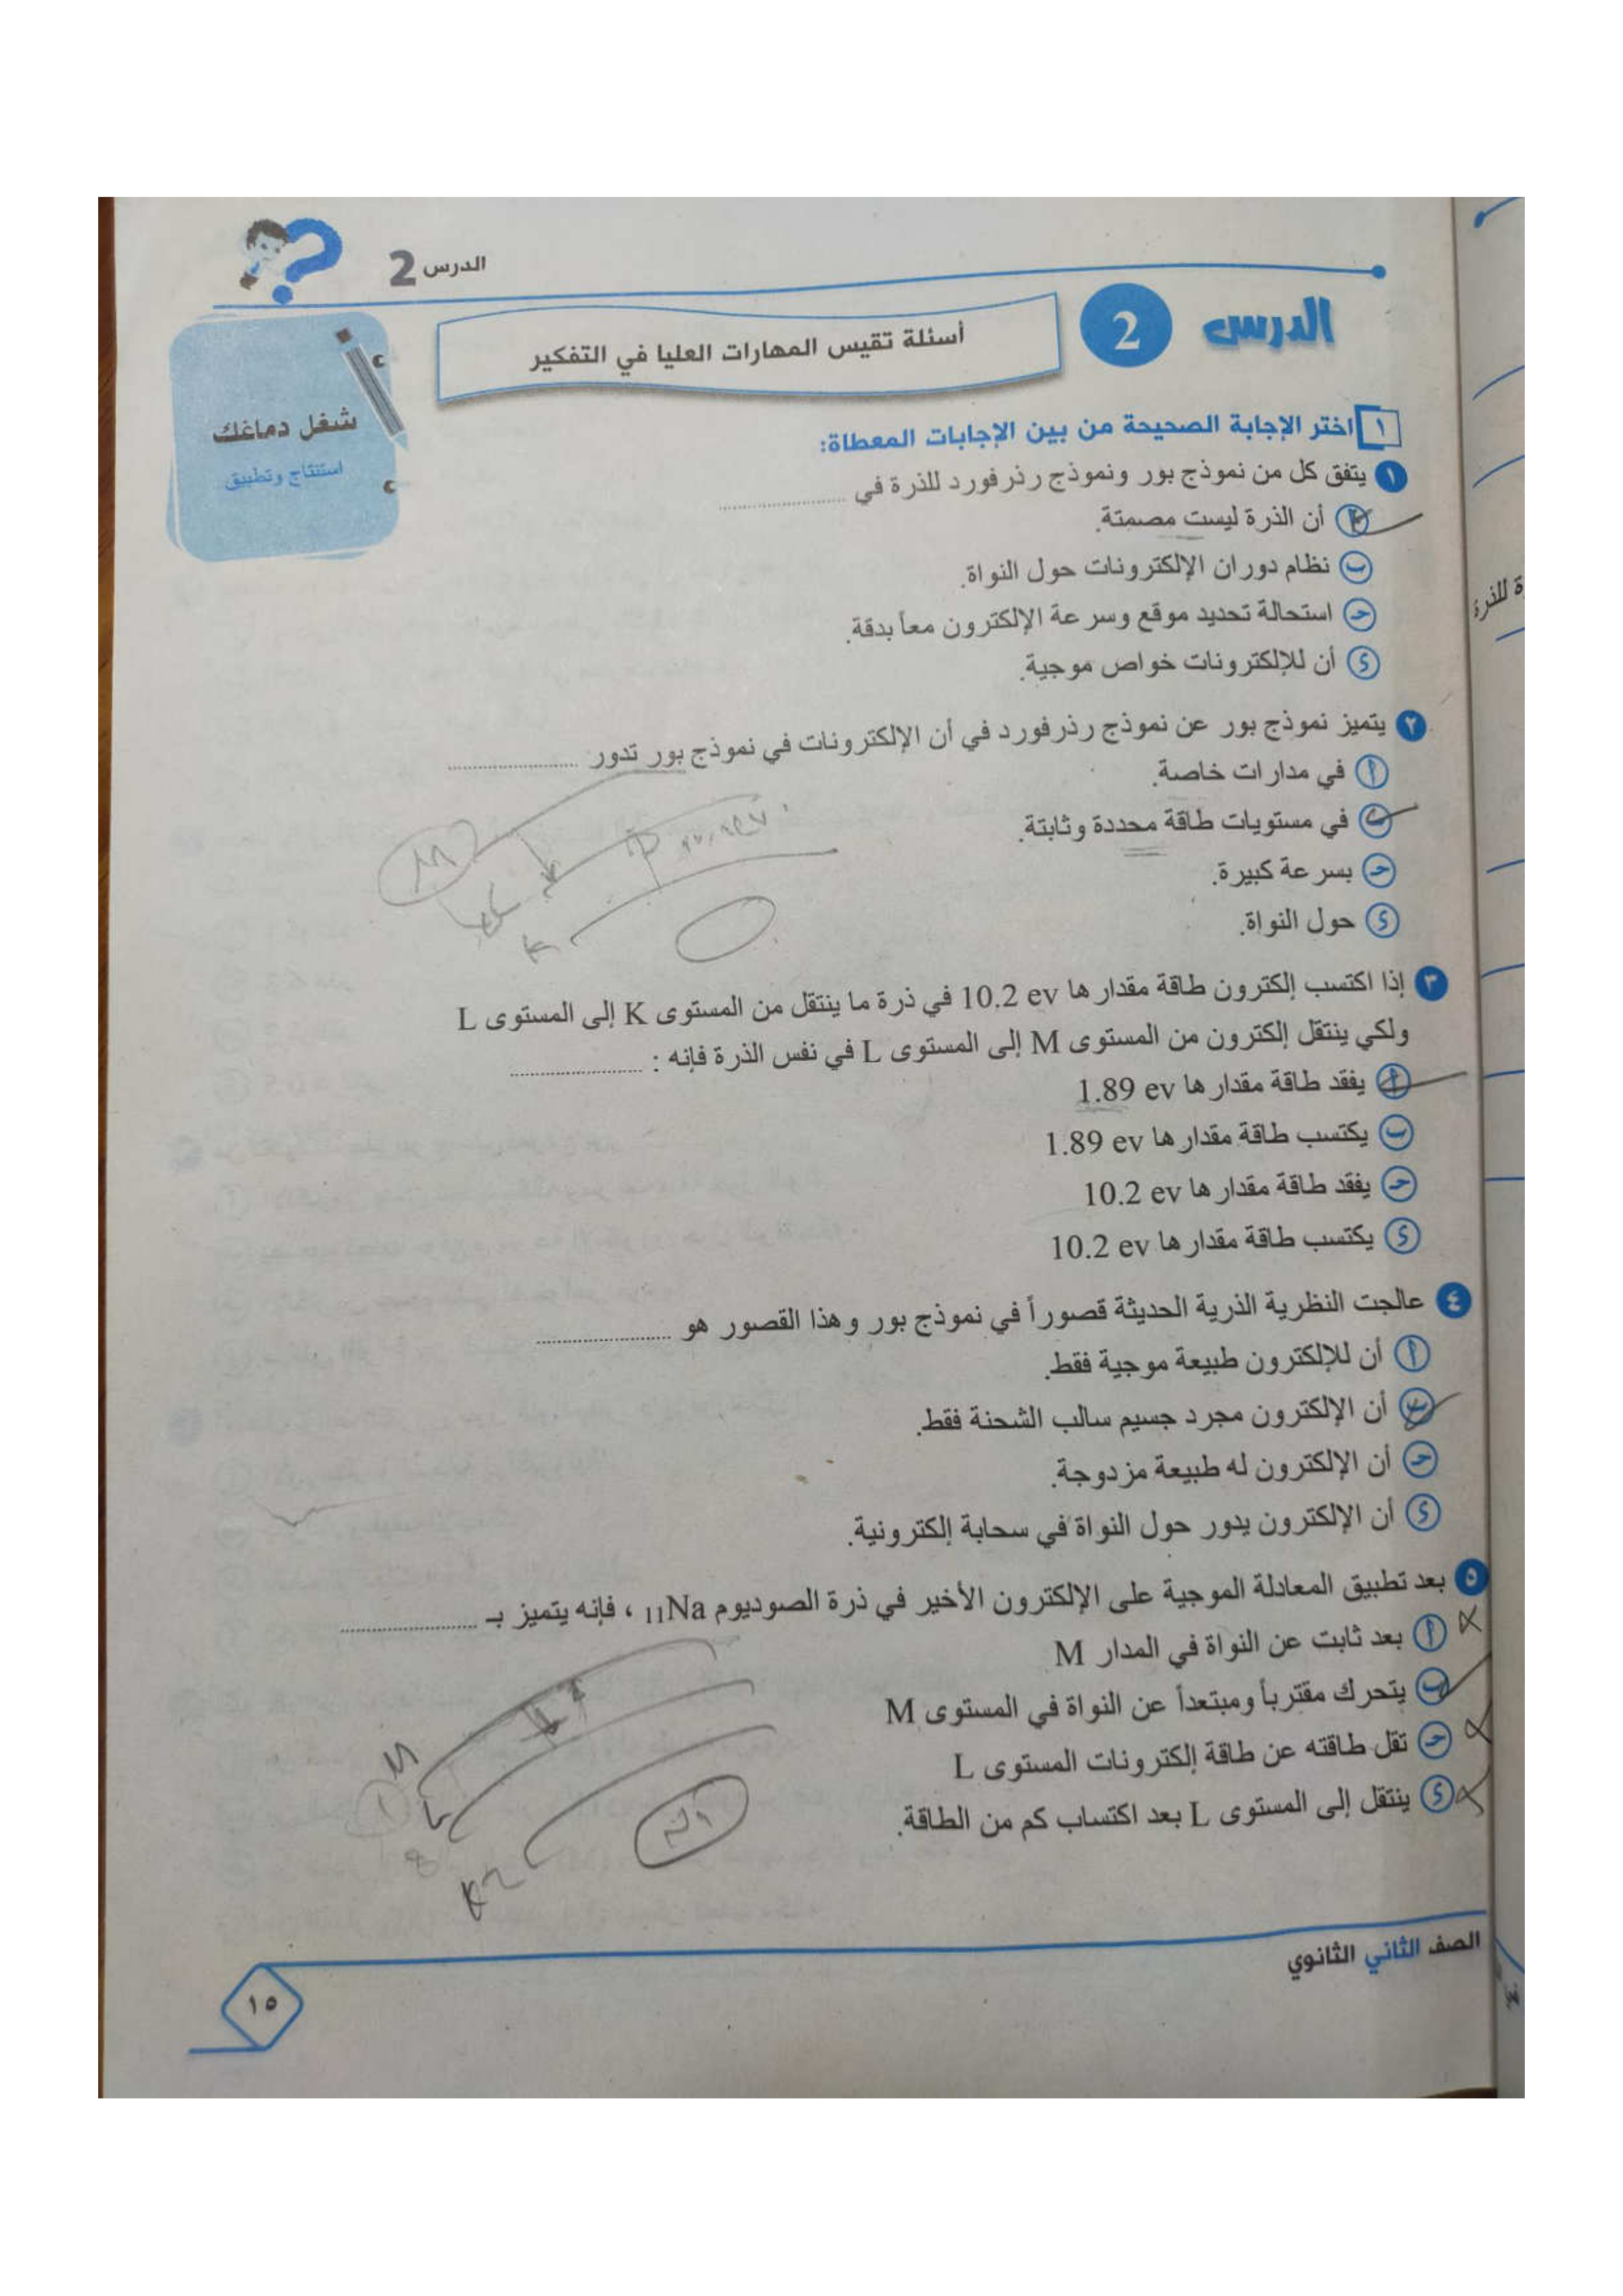 الدرس 2
الدرس 2
أسئلة تقيس المهارات العليا في التفكير
شغل دماغك
استنتاج وتطبيق
١ اختر الإجابة الصحيحة من بين الإجابات المعطاة:
١ يتفق كل من نموذج بور ونموذج رذرفورد للذرة في ....................
أ أن الذرة ليست مصمتة.
ب نظام دوران الإلكترونات حول النواة.
ج استحالة تحديد موقع وسرعة الإلكترون معاً بدقة.
د أن للإلكترونات خواص موجية.
٢ يتميز نموذج بور عن نموذج رذرفورد في أن الإلكترونات في نموذج بور تدور ....................
أ في مدارات خاصة.
ب في مستويات طاقة محددة وثابتة.
ج بسرعة كبيرة.
د حول النواة.
M
K
٣ إذا اكتسب إلكترون طاقة مقدارها 10.2 ev في ذرة ما ينتقل من المستوى K إلى المستوى L
ولكي ينتقل إلكترون من المستوى M إلى المستوى L في نفس الذرة فإنه : ....................
أ يفقد طاقة مقدارها 1.89 ev
ب يكتسب طاقة مقدارها 1.89 ev
ج يفقد طاقة مقدارها 10.2 ev
د يكتسب طاقة مقدارها 10.2 ev
٤ عالجت النظرية الذرية الحديثة قصوراً في نموذج بور وهذا القصور هو ....................
أ أن للإلكترون طبيعة موجية فقط.
ب أن الإلكترون مجرد جسيم سالب الشحنة فقط.
ج أن الإلكترون له طبيعة مزدوجة.
د أن الإلكترون يدور حول النواة في سحابة إلكترونية.
٥ بعد تطبيق المعادلة الموجية على الإلكترون الأخير في ذرة الصوديوم 11Na ، فإنه يتميز بـ ....................
أ بعد ثابت عن النواة في المدار M
ب يتحرك مقترباً ومبتعداً عن النواة في المستوى M
ج تقل طاقته عن طاقة إلكترونات المستوى L
د ينتقل إلى المستوى L بعد اكتساب كم من الطاقة.
M
L
8
K
الصف الثاني الثانوي
١٥
ة للذرة